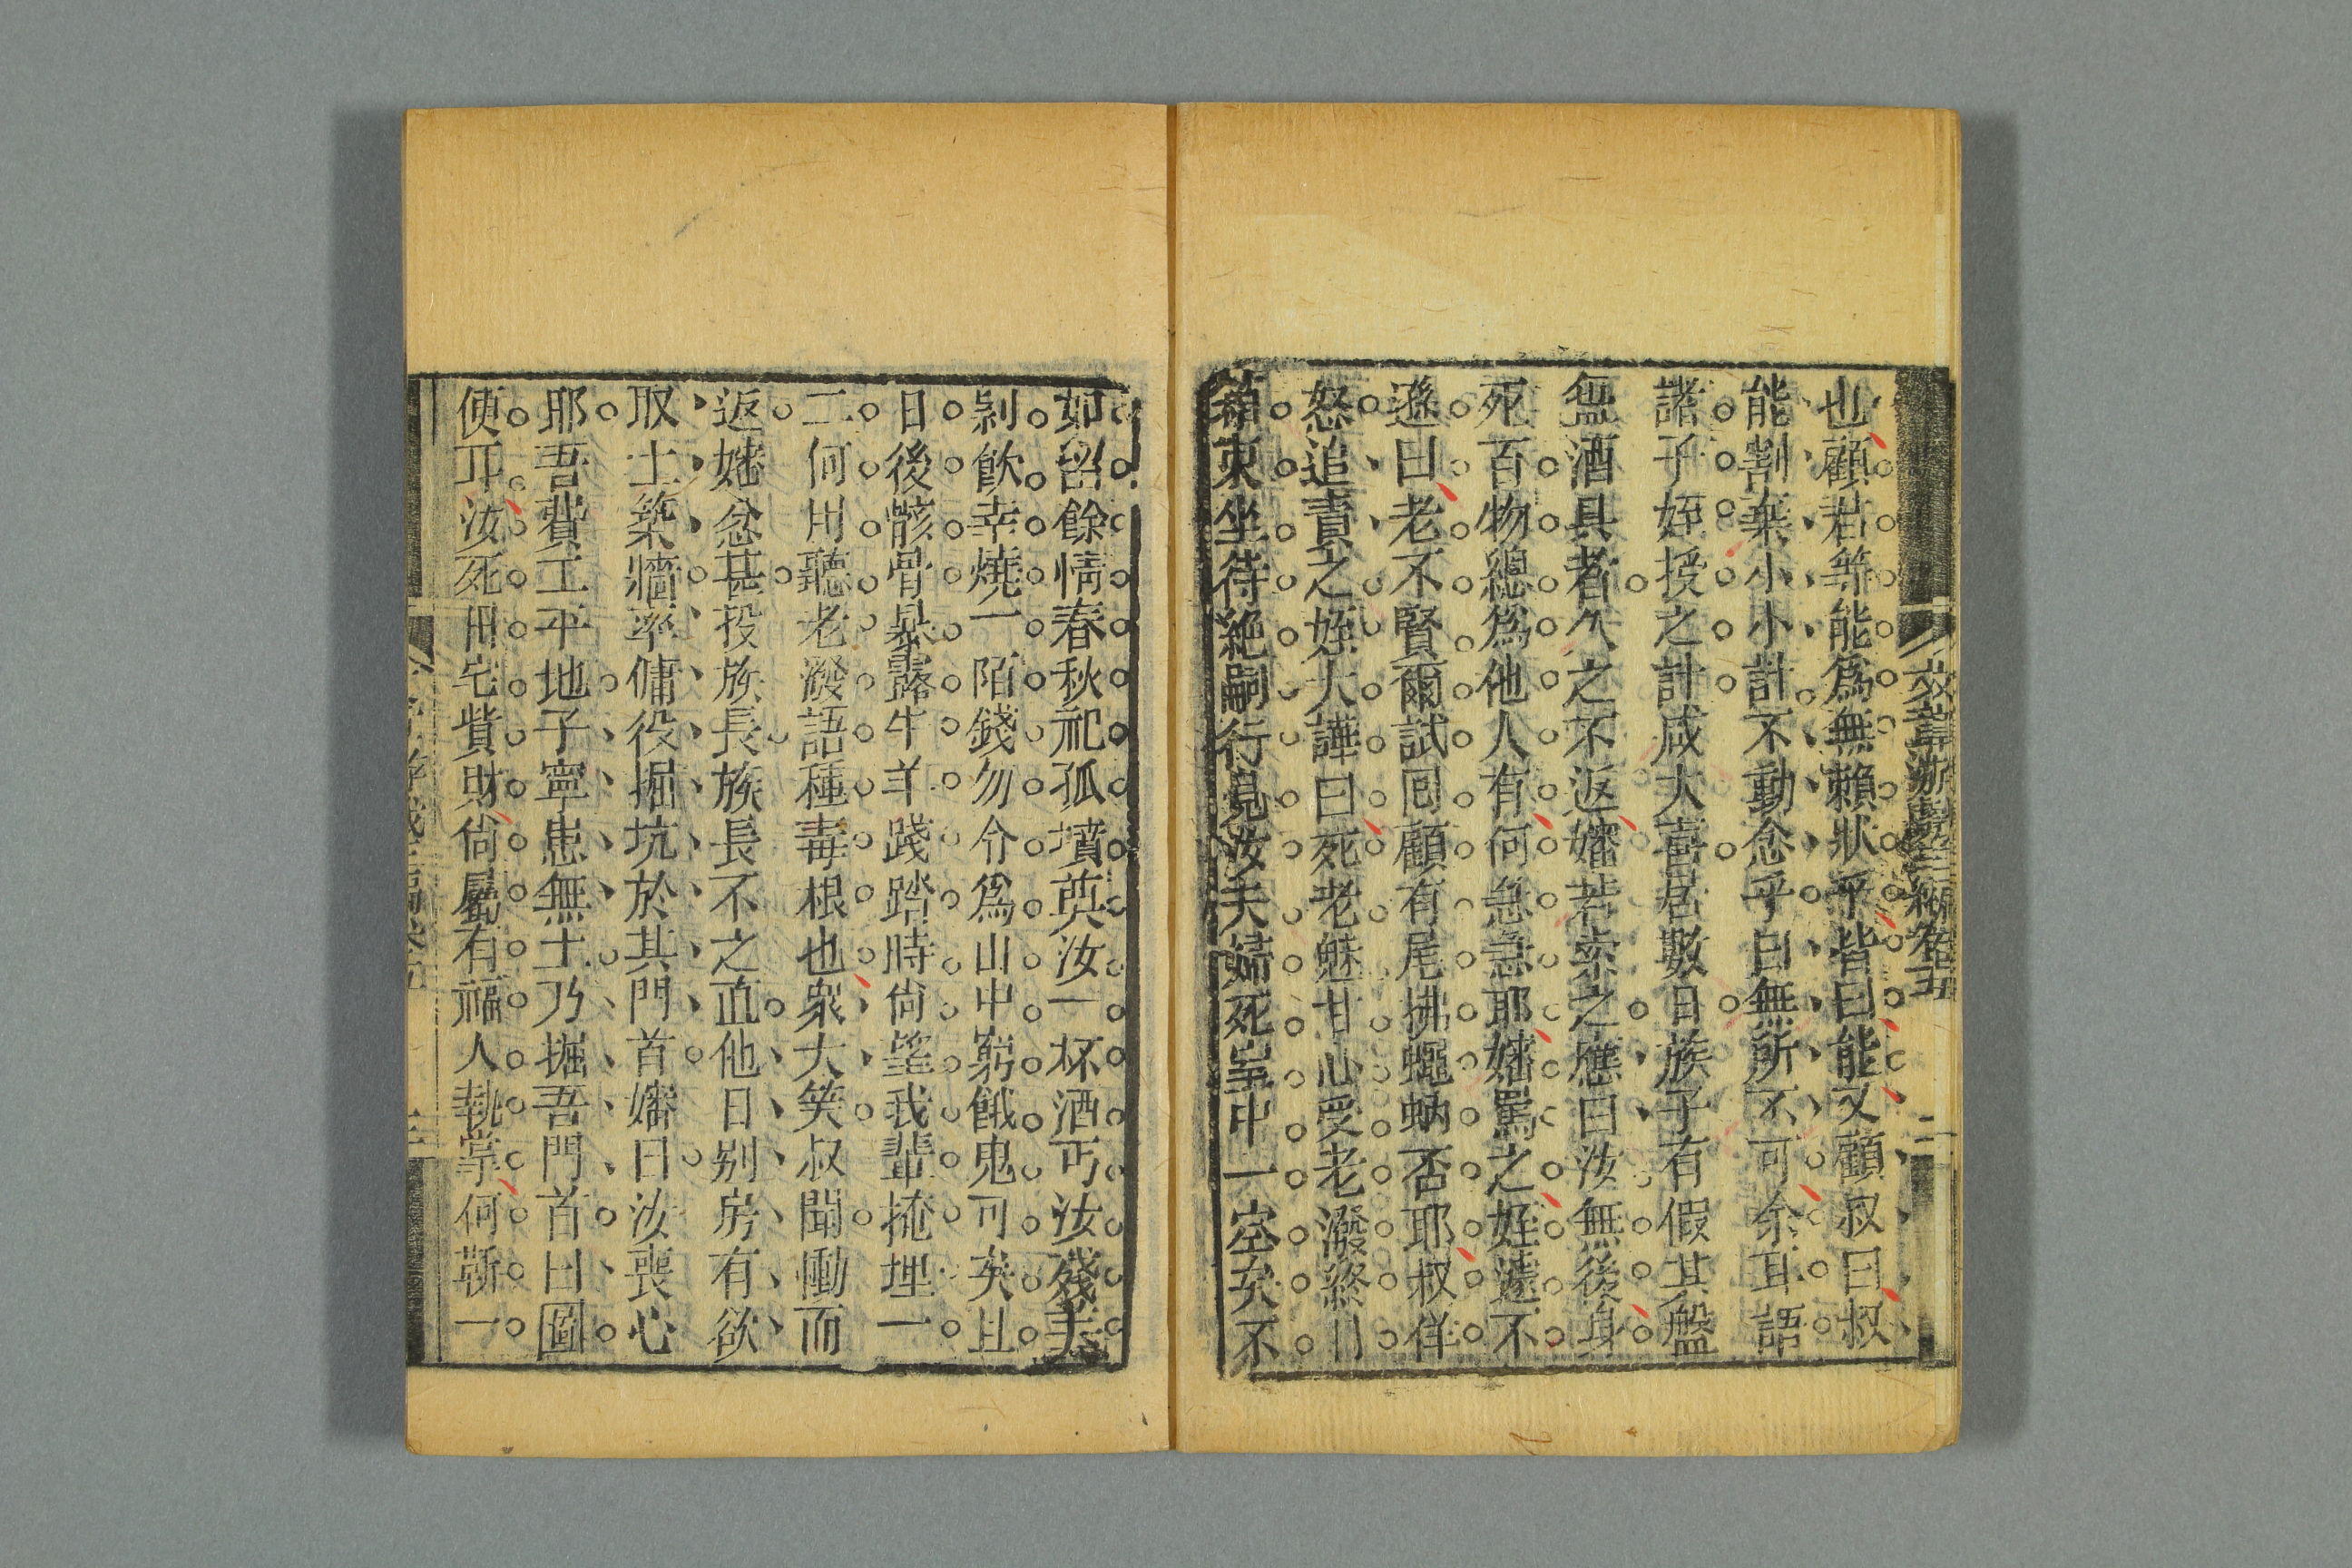 效颦游戲三編卷五
二
也顧君等能爲無賴狀乎皆曰能又顧叔曰叔
能割棄小小計不動念乎曰無所不可余耳語
諸子姪授之計咸大喜居數日族子有假其盤
盌酒具者久之不返嬸若索之應曰汝無後身
死百物總爲他人有何急急耶嬸罵之姪遠不
遜曰老不賢爾試回顧有尾拂蠅蚋否耶叔佯
怒追責之姪大譁曰死老魅甘心受老潑終日
箱東坐待絕嗣行見汝夫婦死皇中一空矣不
如留餘情春秋祀孤墳奠汝一杯酒丐汝殘羹
剩飲幸燒一陌錢勿令爲山中窮餓鬼可矣且
日後骸骨暴露牛羊踐踏時尙望我輩掩埋一
二何用聽老潑語種毒根也衆大笑叔聞慟而
返嬸忿甚投族長族長不之直他日別房有欲
取土築牆率傭役掘坑於其門首嬸曰汝喪心
耶吾費工平地子寧患無土乃掘吾門首曰圖
便耳汝死田宅貲財尙屬有福人執掌何靳一
三